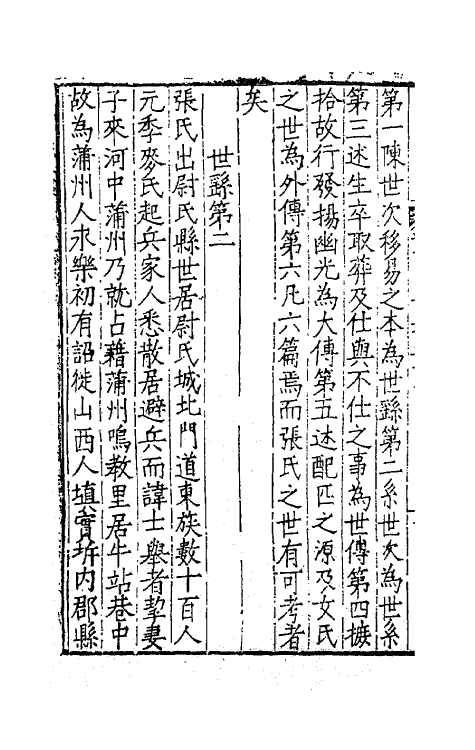 第一陳世次移易之本為世繇第二系世次為世系
第三述生卒取葬及仕與不仕之事為世傳第四摭
拾故行發揚幽光為大傳第五述配匹之源及女氏
之世為外傳第六凡六篇焉而張氏之世有可考者
矣
世繇第二
張氏出尉氏縣世居尉氏城北門道東族數十百人
元季麥氏起兵家人悉散居避兵而諱士舉者挈妻
子來河中蒲州乃就占藉蒲州鳴教里居牛站巷中
故為蒲州人永樂初有詔徙山西人填實圻內郡縣